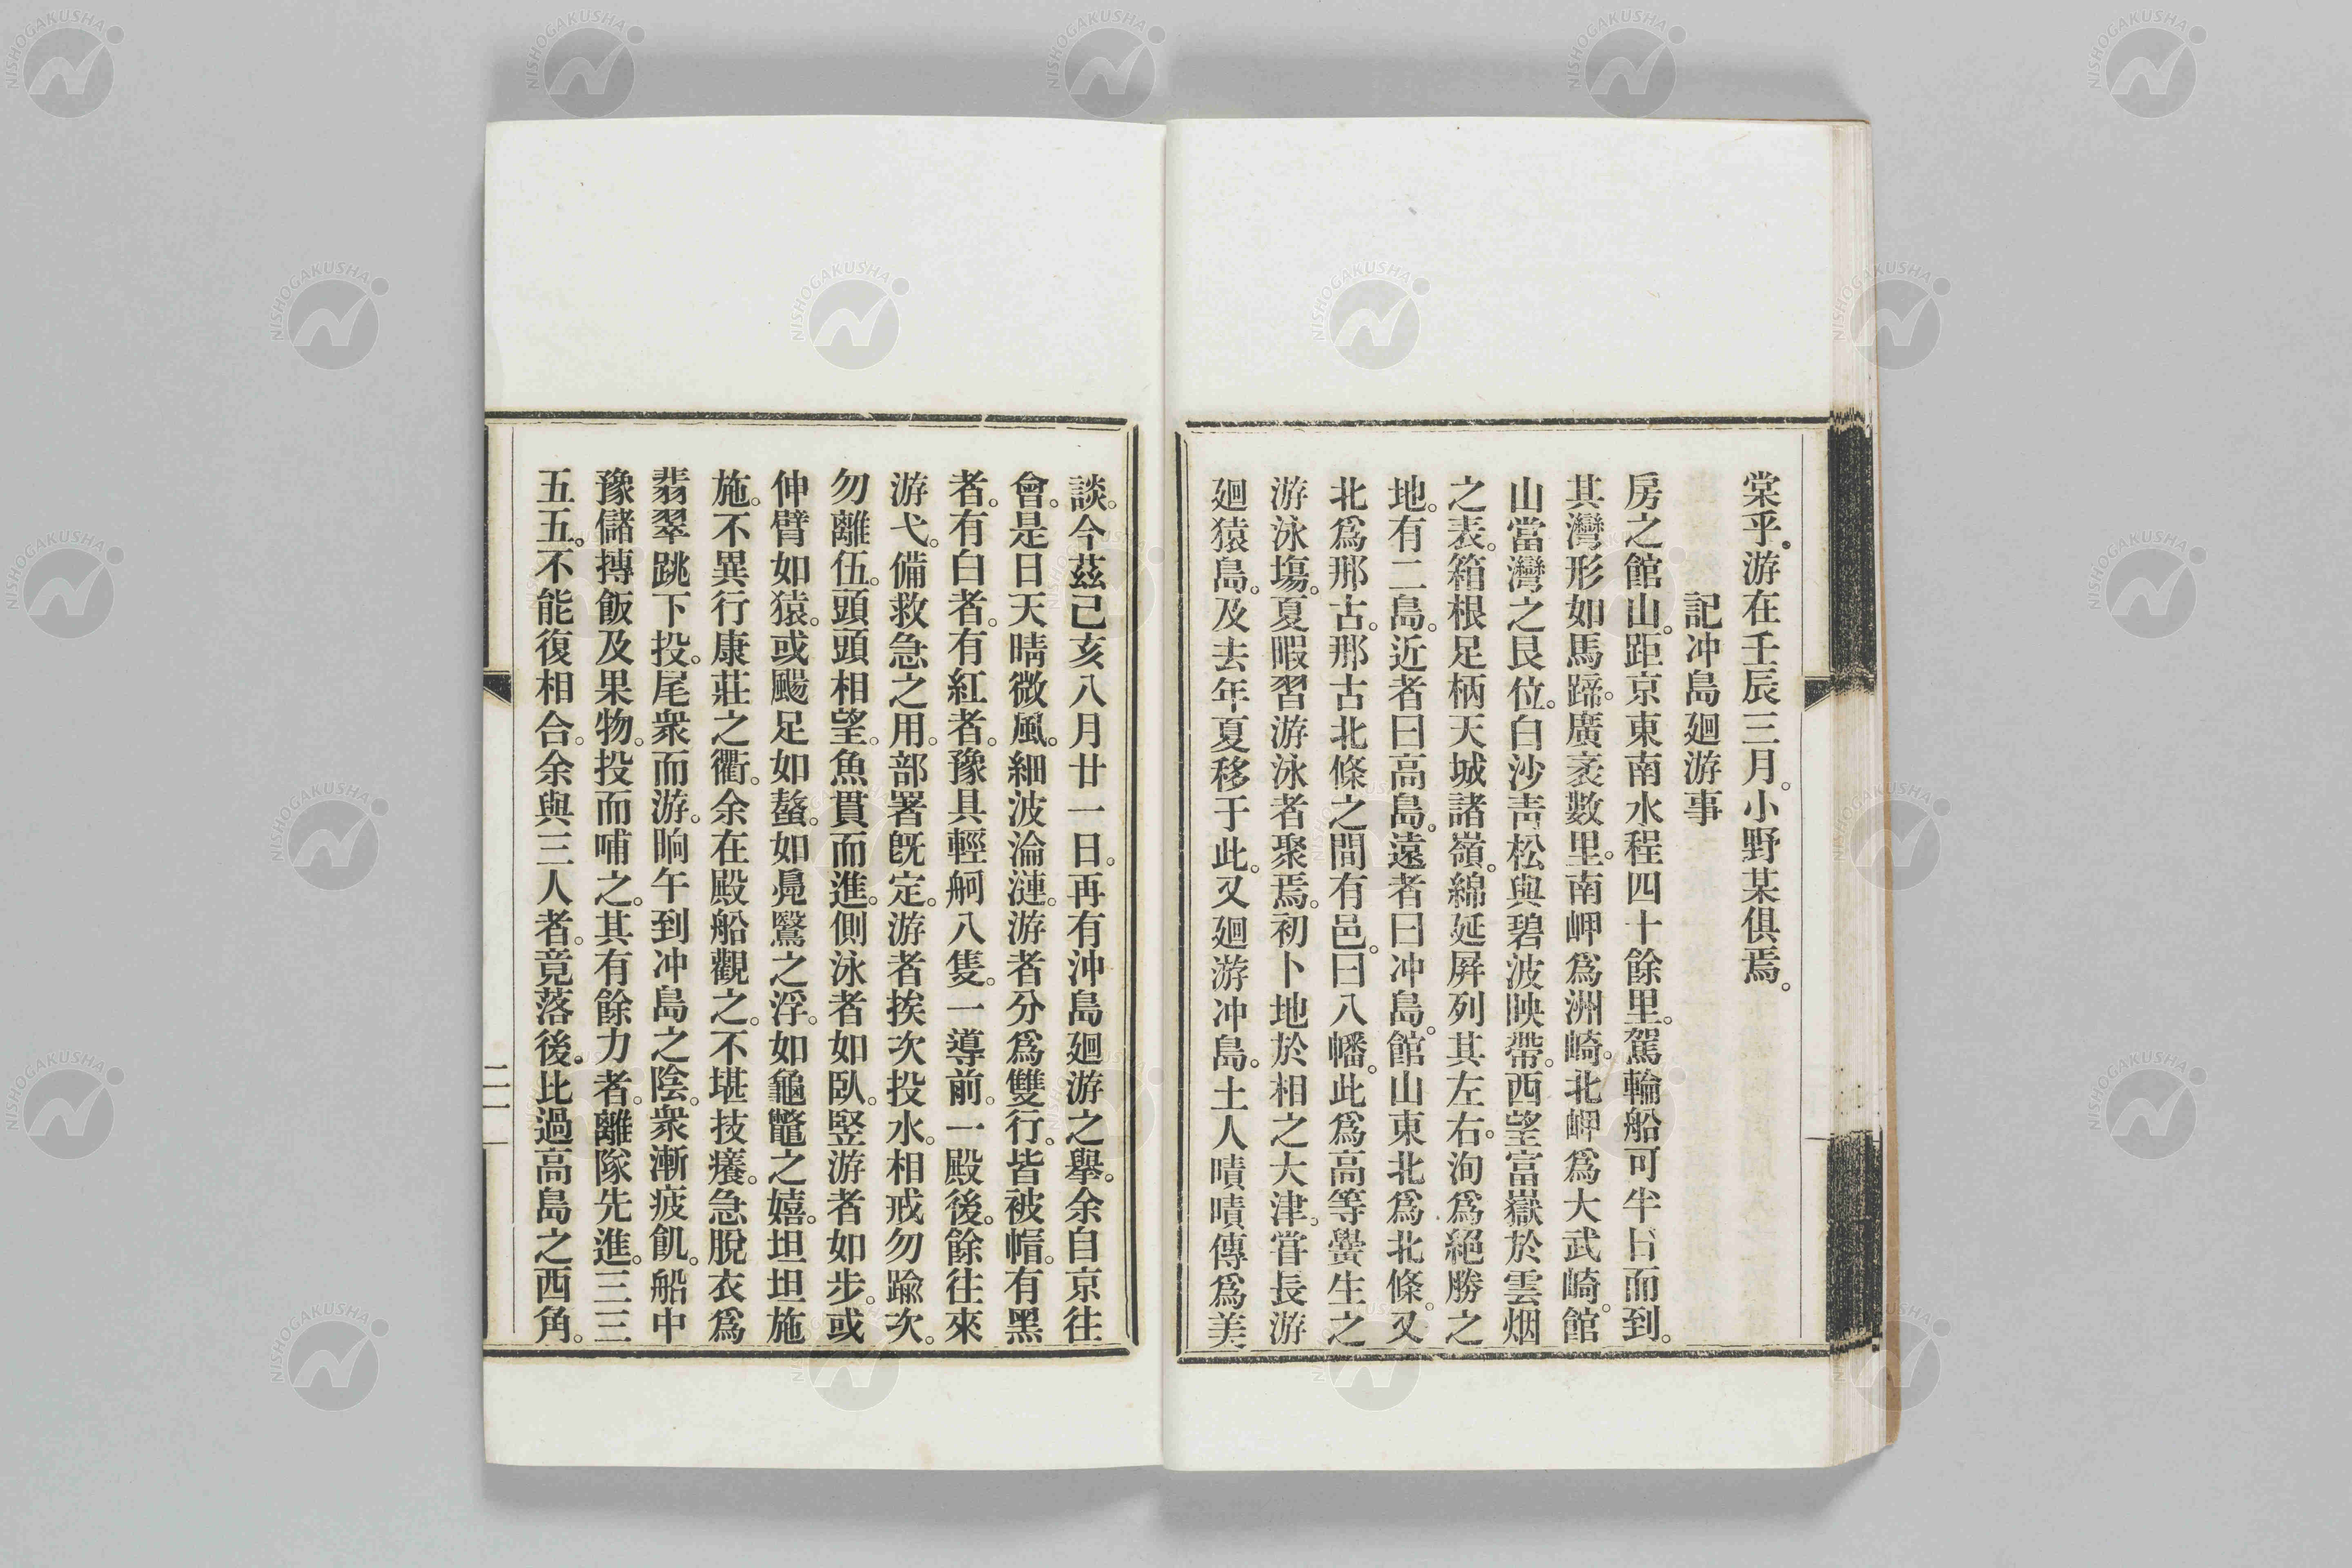 棠乎。游在壬辰三月。小野某俱焉。
記冲島廻游事
房之館山。距京東南水程四十餘里。駕輪船可半日而到。
其灣形如馬蹄。廣袤數里。南岬爲洲崎。北岬爲大武崎。館
山當灣之艮位。白沙靑松與碧波映帶。西望富嶽於雲烟
之表。箱根足柄天城諸嶺。綿延屛列其左右。洵爲絕勝之
地。有二島。近者曰高島。遠者曰冲島。館山東北爲北條。又
北爲那古。那古北條之間有邑。曰八幡。此爲高等黌生之
游泳塲。夏暇習游泳者聚焉。初卜地於相之大津。甞長游
廻猿島。及去年夏移于此。又廻游冲島。土人嘖嘖傳爲美
談。今茲己亥八月廿一日。再有沖島廻游之擧。余自京往
會。是日天晴微風。細波淪漣。游者分爲雙行。皆被帽。有黑
者。有白者。有紅者。豫具輕舸八隻。一導前。一殿後。餘往來
游弋。備救急之用。部署既定。游者挨次投水。相戒勿踰次。
勿離伍。頭頭相望。魚貫而進。側泳者如臥。竪游者如步。或
伸臂如猿。或颺足如螯。如鳧鷖之浮。如龜鼈之嬉。坦坦施
施。不異行康莊之衢。余在殿船觀之。不堪技癢。急脫衣爲
翡翠跳下投。尾衆而游。晌午到冲島之陰。衆漸疲飢。船中
豫儲摶飯及果物。投而哺之。其有餘力者。離隊先進。三三
五五。不能復相合。余與三人者。竟落後。比過高島之西角。
二一
NISHOGAKUSHA